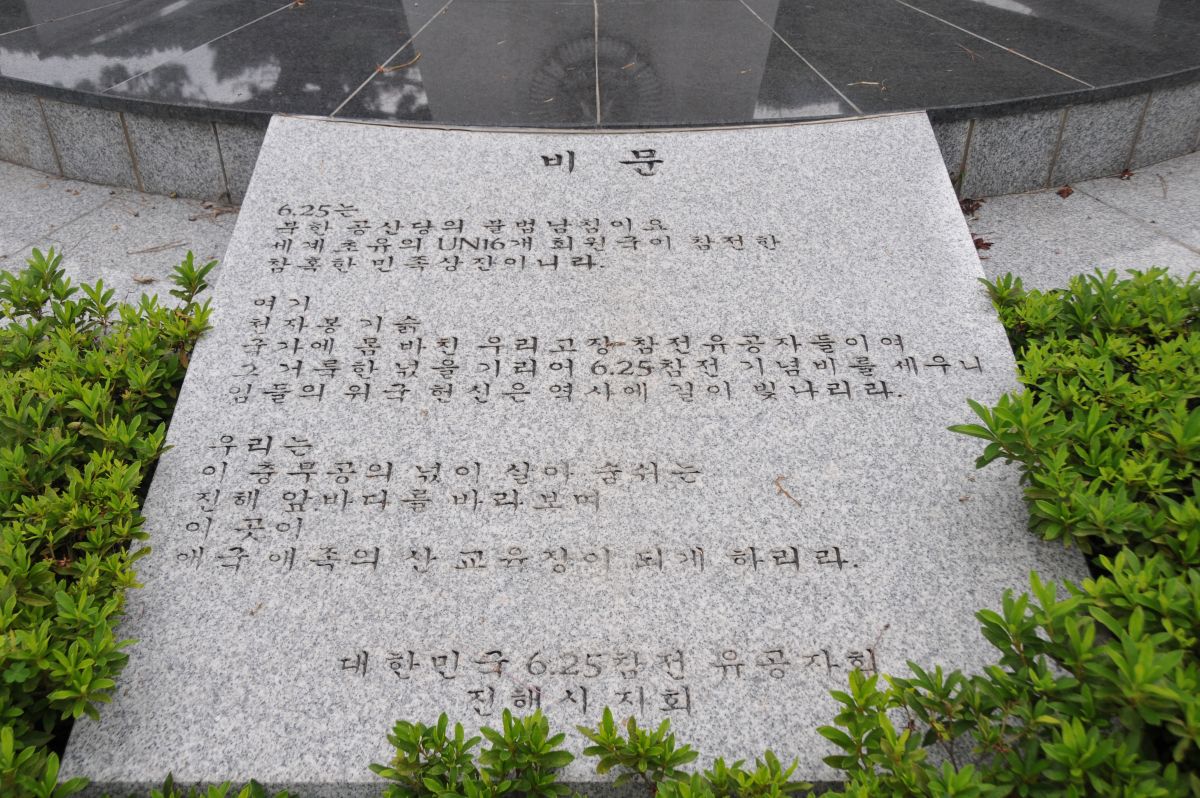 비 문
6.25는
북한 공산당의 불법남침이요
세계초유의 UN16개 회원국이 참전한
참혹한 민족상잔이니라.
여기
천자봉 기슭
국가에 몸 바친 우리고장 참전유공자들이여
그 거룩한 넋을 기리어 6.25참전 기념비를 세우니
임들의 위국 헌신은 역사에 길이 빛나리라.
우리는
이 충무공의 넋이 살아 숨쉬는
진해 앞바다를 바라보며
이 곳이
애국애족의 산 교육장이 되게 하리라.
대한민국 6.25참전 유공자회
진해시지회